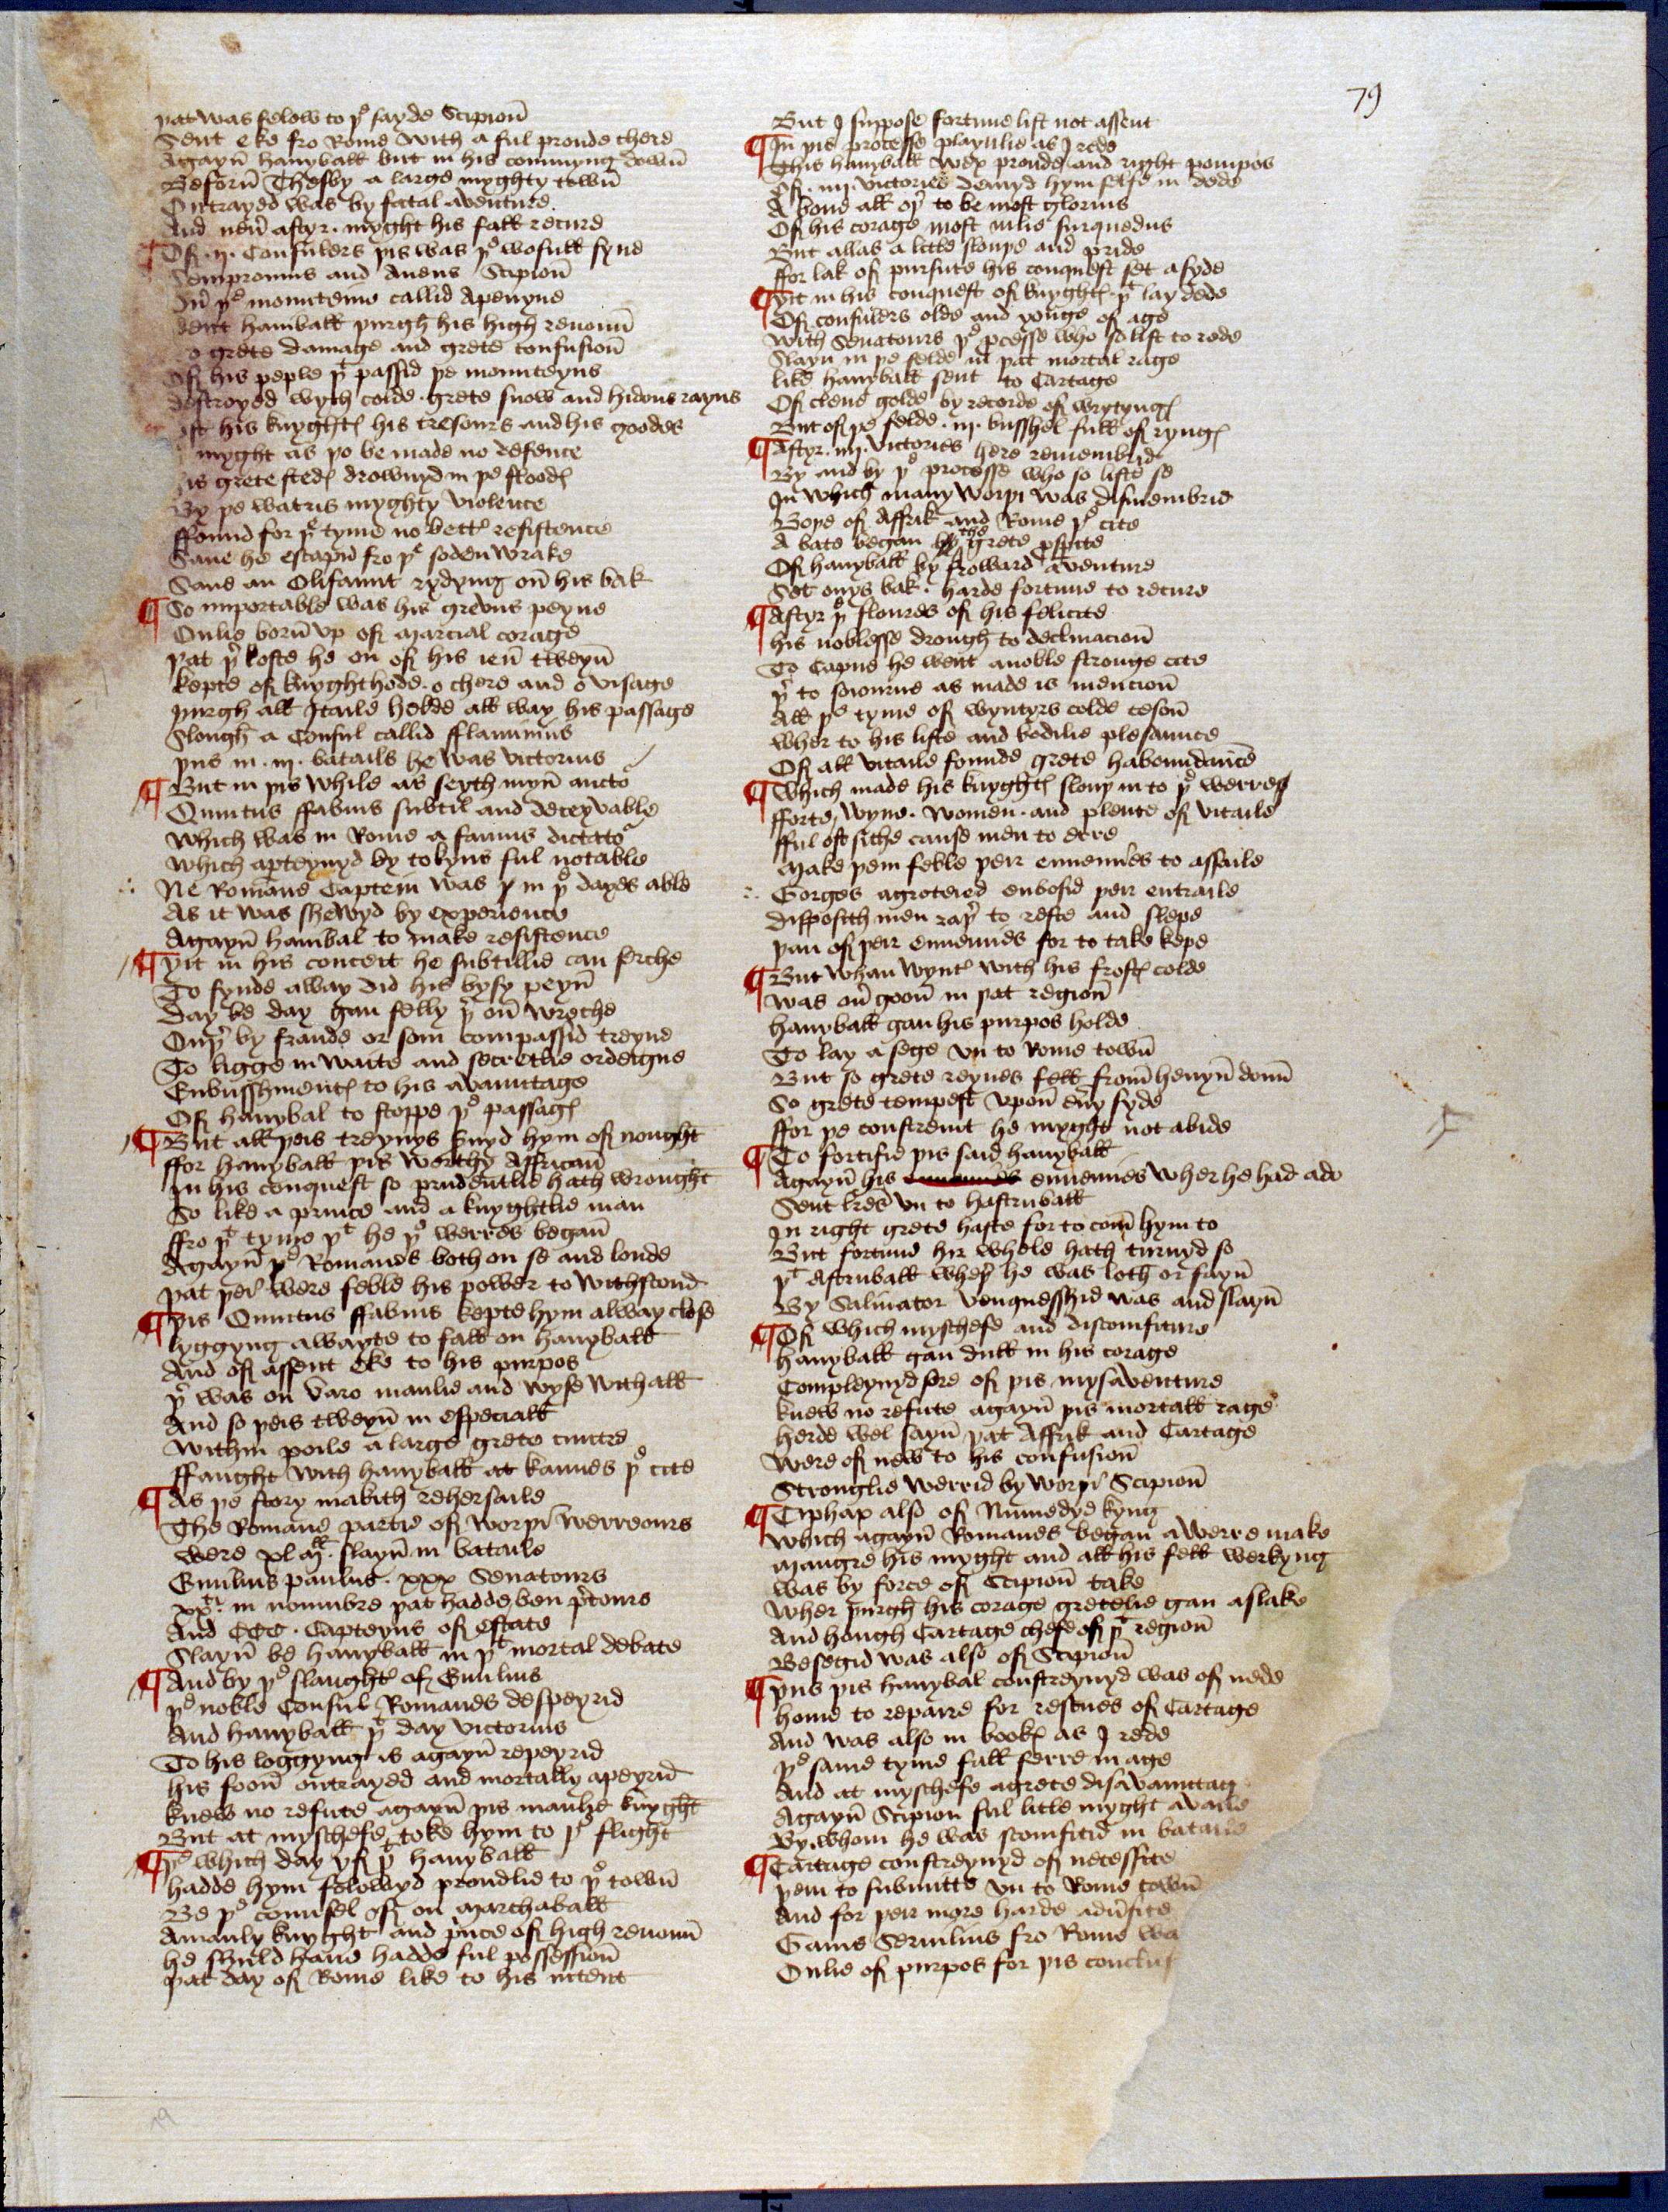 79
þat was felow to þe sayde Scipioun
Sent eke fro Rome with a ful proude chere
Agayn hanyball but in his commyng down
Beforn Thesby a large myghty town
Outrayed was by fatal aventure
And neuer aftyr myght his fall recure
Of .ij. Consulers þis was þe wofull fyne
Sempronius and Aneus Scipion
In þe mounteine callid Apenyne
hanball þurgh his high renoun
grete damage and grete confusion
Of his peple þt passid þe mounteyns
destroyed wyth colde grete snow and hidous rayns
his knyghtes his tresours and his goodes
myght as þo be made no defence
his grete stedes drownyd in þe floodes
By þe watris myghty violence
ffound for þt tyme no better resistence
Saue he escapid fro þt soden wrake
Saue an Olifaunt rydyng on his bak
So importable was his greuus peyne
Onlie born vp of marcial corage
þat þer loste he on of his ien tweyn
kepte of knyghthode o chere and o visage
þurgh all Itaile holde all way his passage
Slough a Consul callid fflaminius
þus in .iij. batails he was victorius
But in þis while as seyth myn auctor
Quintus ffabius subtil and deceyvable
which was in Rome a famus dictator
which apteynyd by tokyns ful notable
Ne Romane Captein was þer in þo dayes able
As it was shewyd by experience
Agayn hanibal to make resistence
yit in his conceit he subtillie can serche
To fynde alway did his bysy peyn
Day be day gan felly þer on werche
Ouþer by fraude or som compassid treyne
To ligge in waite and secretlie ordeigne
Enbusshmentes to his avauntage
Of hanybal to stoppe þe passages
But all þeis treynys seruyd hym of nought
ffor hanyball þis worthy Affrican
In his conquest so prudentlie hath wrought
So like a prince and a knyghtlie man
ffro þt tyme þt he þe werres began
Agayn þe Romanes both on se and londe
þat þei were feble his power to withstond
þis Quintus ffabius kepte hym alway close
lyggyng awayte to fall on hanyball
And of assent eke to his purpos
þer was on varo manlie and wyse withall
And so þeis tweyn in especiall
within poile a large grete cuntre
ffaught with hanyball at kannes þe cite
As þe story makith rehersaile
The Romane partie of worþi werreours
were xl Ml slayn in bataile
Emilius paulus xxx Senatours
xxti in noumbre þat hadde ben pretours
And CCC Capteyns of estate
Slayn be hanyball in þt mortal debate
And by þe slaughter of Emilius
þe noble Consul Romanes despeyrid
And hanyball þt day victorius
To his loggyng is agayn repeyrid
his foon outrayed and mortally apeyrid
knew no refute agayn þis manlie knyght
But at myschefe toke hym to þe flight
þe which day yf þt hanyball
hadde hym folowyd proudlie to þe town
Be þe counsel of on marchaball
A manly knyght and prince of high renoun
he shuld haue hadde ful possession
þat day of Rome like to his intent
But I suppose fortune list not assent
In þis processe playnlie as I rede
This hanyball wex proude and right pompos
Of .iiij. victories demyd hym selfe in dede
A boue all oþer to be most glorius
Of his corage most inlie surquedus
But allas a litle slouþe and pride
ffor lak of pursute his conquest set asyde
yit in his conquest of knyghtes þt lay dede
Of consulers olde and yonge of age
with Senatours þe processe who so list to rede
Slayn in þe felde in þat mortal rage
like hanyball sent to Cartage
Of clene golde by recorde of wrytynges
But of þe felde .iij. busshel full of rynges
Aftyr .iiij. victories here remembrid
By and by þe processe who so liste se
In which many worþi was dismembrid
Boþe of Affrik and Rome þe cite
A bate began the grete prosperite
Of hanyball by froward aventure
Set onys bak harde fortune to recure
Aftyr þe floures of his felicite
his noblesse drough to declinacion
To Capue he went a noble stronge cite
þer to soiourne as made is mencion
All þe tyme of wyntyrs colde seson
wher to his liste and bodilie plesaunce
Of all vitaile founde grete habondaunce
which made his knyghtes slouþ in to þe werres
fforte, wyne women and plente of vitaile
fful oft sithe cause men to erre
Make þem feble þeir enemies to assaile
Gorges agroteied enbosid þeir entraile
disposith men raþer to reste and slepe
þan of þeir ennemies for to take kepe
But whan wynter with his frostes colde
was ouer goon in þat region
hanyball gan his purpos holde
To lay a sege vn to Rome town
But so grete reynes fell from heuyn doun
So grete tempest vpon euery syde
ffor þe constreint he myght not abide
To fortifie þis said hanyball
Agayn his enemies wher he had ado
Sent lettres vn to hastruball
In right grete haste for to com hym to
But fortune hir whele hath turnyd so
þt Astruball wheþer he was loth or fayn
By Salinator venquesshid was and slayn
Of which myschefe and discomfiture
hanyball gan dull in his corage
Compleynyd sore of þis mysaventure
knew no refute agayn þis mortall rage
herde wel sayn þat Affrik and Cartage
were of new to his confusion
Stronglie werrid by worþi Scipion
Ciphax also of Numedye kyng
which agayn Romanes began a werre make
Maugre his myght and all his fell werkyng
was by force of Scipion take
wher þurgh his corage gretelie gan aslake
And hough Cartage chefe of þt region
Besegid was also of Scipion
þus þis hanybal constreynyd was of nede
home to repaire for rescues of Cartage
And was also in bookes as I rede
þe same tyme fall ferre in age
And at myschefe a grete disavauntag
Agayn Scipion ful litle myght availe
By whom he was scomfitid in bataile
Cartage constreynyd of necessite
þem to submitte vn to Rome town
And for þeir more harde aduersite
Gaius Seruilius fro Rome wa
Onlie of purpos for þis conclus